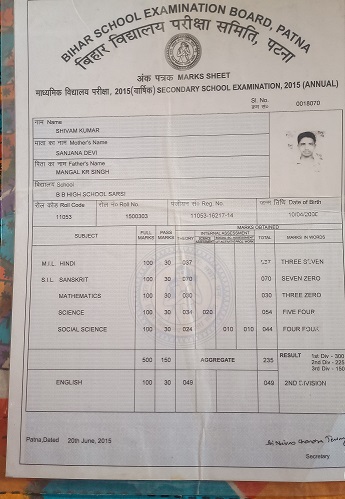 BIHAR SCHOOL EXAMINATION BOARD, PATNA
बिहार विद्यालय परीक्षा समिति, पटना
अंक पत्रक MARKS SHEET
माध्यमिक विद्यालय परीक्षा, 2015 (वार्षिक) SECONDARY SCHOOL EXAMINATION, 2015 (ANNUAL)
Sl. No. 0018070
क्रम सं०
नाम Name
SHIVAM KUMAR
माता का नाम Mother's Name
SANJANA DEVI
पिता का नाम Father's Name
MANGAL KR SINGH
विद्यालय School
B B HIGH SCHOOL SARSI
रोल कोड Roll Code रोल सं० Roll No. पंजीयन सं० Reg. No. जन्म तिथि Date of Birth
11053 1500303 11053-16217-14
SUBJECT FULL MARKS PASS MARKS MARKS OBTAINED
THEORY INTERNAL ASSESSMENT TOTAL MARKS IN WORDS
M.I.L. HINDI 100 30 037 THREE SEVEN
S.I.L. SANSKRIT 100 30 070 070 SEVEN ZERO
MATHEMATICS 100 30 030 030 THREE ZERO
SCIENCE 100 30 034 020 054 FIVE FOUR
SOCIAL SCIENCE 100 30 024 010 010 044 FOUR FOUR
500 150 AGGREGATE 235 RESULT 1st Div - 300
2nd Div - 225
3rd Div - 150
ENGLISH 100 30 049 049 2ND DIVISION
Patna,Dated 20th June, 2015
Secretary